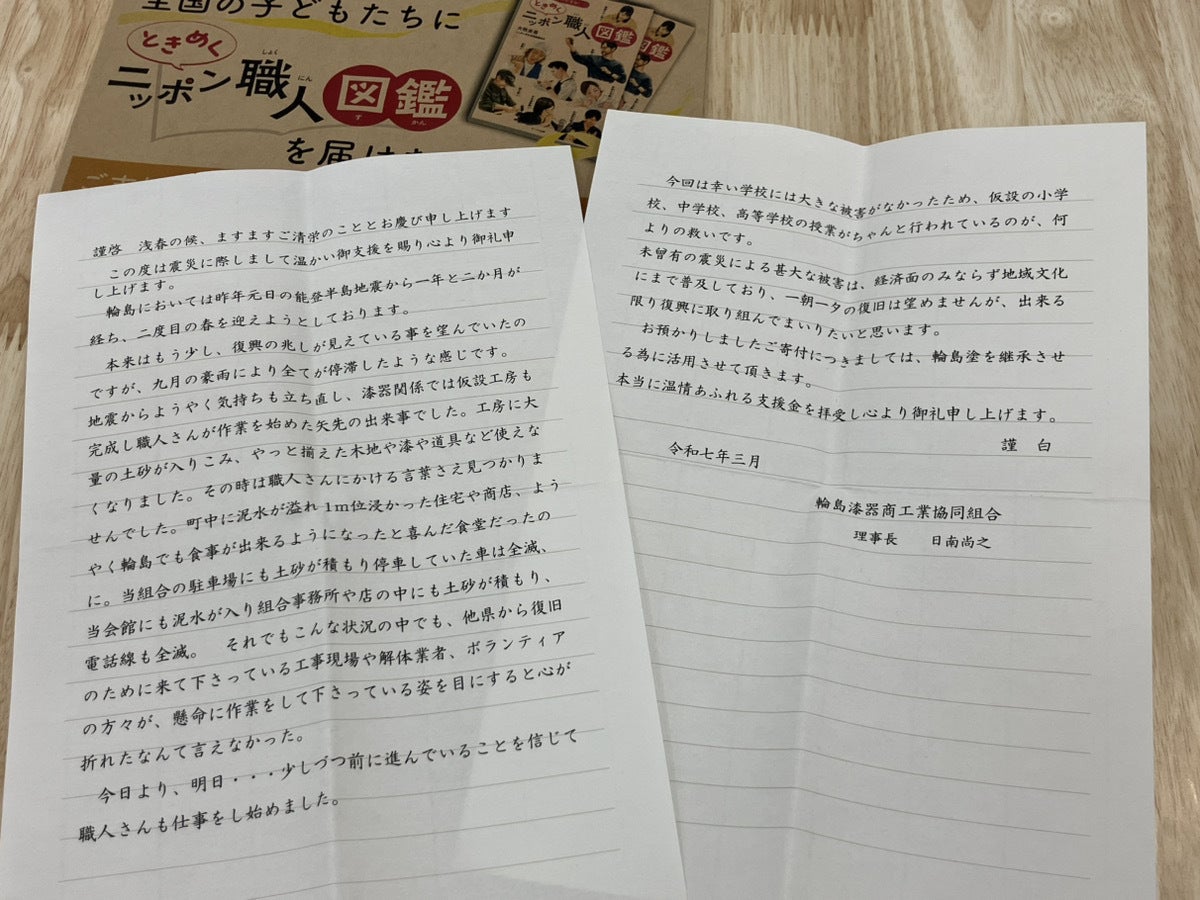 全国の子どもたちに
ときめく
ニッポン職人図鑑
しょく
にん
ず
かん
を届け
ときめく
ニッポン職人図鑑
図鑑
謹啓 浅春の候、ますますご清栄のこととお慶び申し上げます
この度は震災に際しまして温かい御支援を賜り心より御礼申
し上げます。
輪島においては昨年元日の能登半島地震から一年と二か月が
経ち、二度目の春を迎えようとしております。
本来はもう少し、復興の兆しが見えている事を望んでいたの
ですが、九月の豪雨により全てが停滞したような感じです。
地震からようやく気持ちも立ち直し、漆器関係では仮設工房も
完成し職人さんが作業を始めた矢先の出来事でした。工房に大
量の土砂が入りこみ、やっと揃えた木地や漆や道具など使えな
くなりました。その時は職人さんにかける言葉さえ見つかりま
せんでした。町中に泥水が溢れ1m位浸かった住宅や商店、よう
やく輪島でも食事が出来るようになったと喜んだ食堂だったの
に。当組合の駐車場にも土砂が積もり停車していた車は全滅、
当会館にも泥水が入り組合事務所や店の中にも土砂が積もり、
電話線も全滅。 それでもこんな状況の中でも、他県から復旧
のために来て下さっている工事現場や解体業者、ボランティア
の方々が、懸命に作業をして下さっている姿を目にすると心が
折れたなんて言えなかった。
今日より、明日・・・少しづつ前に進んでいることを信じて
職人さんも仕事をし始めました。
今回は幸い学校には大きな被害がなかったため、仮設の小学
校、中学校、高等学校の授業がちゃんと行われているのが、何
よりの救いです。
未曾有の震災による甚大な被害は、経済面のみならず地域文化
にまで普及しており、一朝一夕の復旧は望めませんが、出来る
限り復興に取り組んでまいりたいと思います。
お預かりしましたご寄付につきましては、輪島塗を継承させ
る為に活用させて頂きます。
本当に温情あふれる支援金を拝受し心より御礼申し上げます。
謹 白
令和七年三月
輪島漆器商工業協同組合
理事長 日南尚之